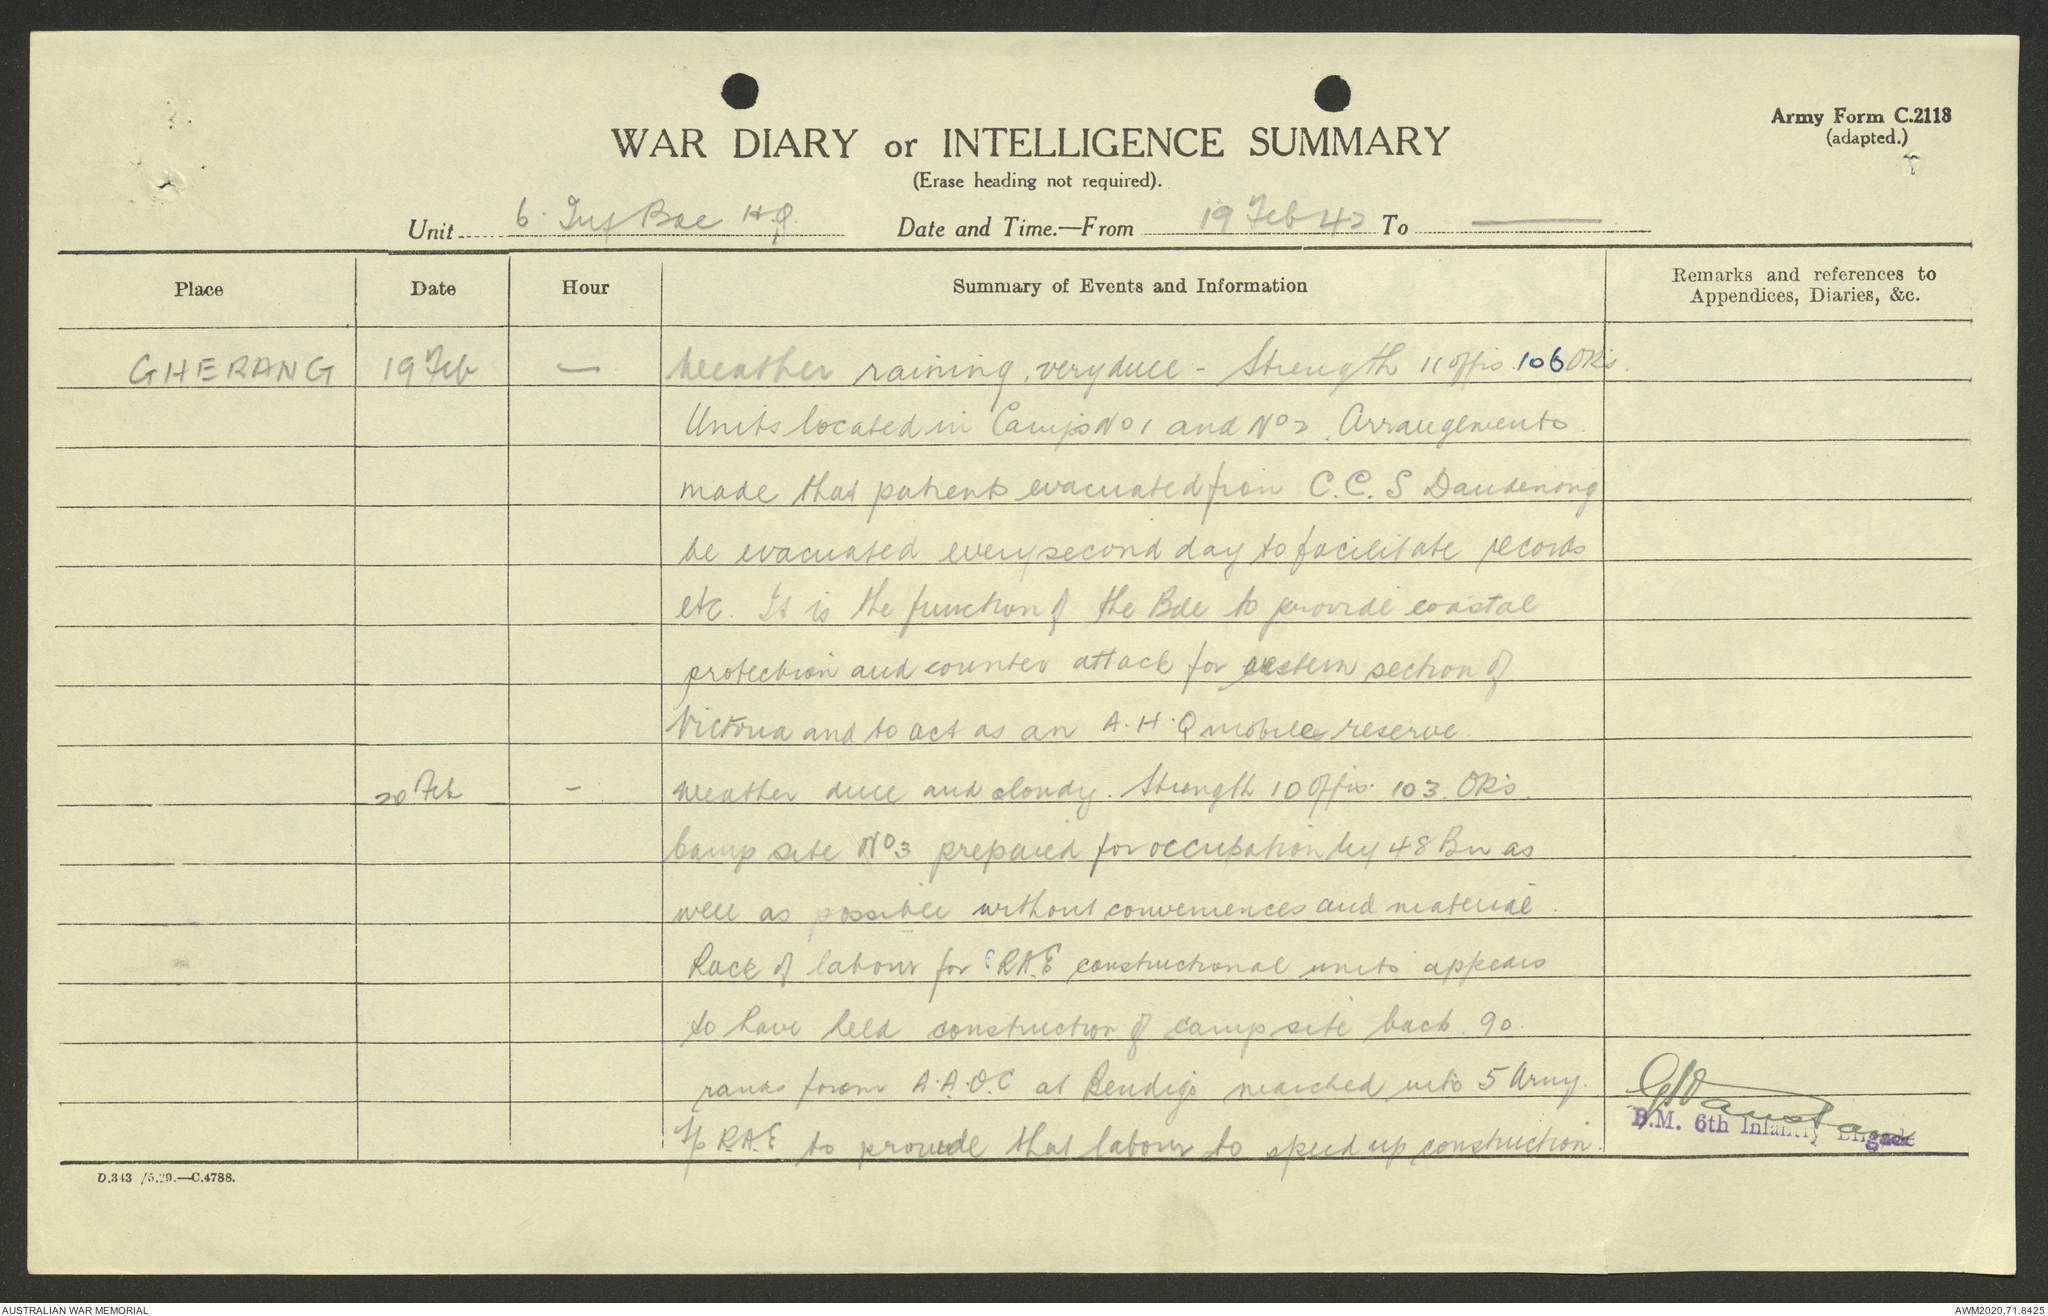 Army Form C.2118
(adapted.)
WAR DIARY or INTELLIGENCE SUMMARY
(Erase heading not required).
Unit 6. Inf Bde H.Q. Date and Time.—From 19 Feb 42 To —
Place Date Hour Summary of Events and Information Remarks and references to Appendices, Diaries, &c.
GHERANG 19 Feb — Weather raining, very dull - Strength 11 offrs. 106 ORs.
Units located in Camps No 1 and No 2. Arrangements
made that patients evacuated from C.C.S Dandenong
be evacuated every second day to facilitate records
etc. It is the function of the Bde to provide coastal
protection and counter attack for western section of
Victoria and to act as an A.H.Q mobile reserve.
20 Feb - Weather dull and cloudy. Strength 10 Offrs. 103. ORs.
Camp site No 3 prepared for occupation by 48 Bn as
well as possible without conveniences and material.
Lack of labour for RAE constructional units appears
to have held construction of camp site back. 90.
ranks from A.A.O.C at Bendigo marched into 5 Army.
Tp RAE to provide that labour to speed up construction.
B.M. 6th Infantry Brigade
D.343 /5.39.—C.4788.
AUSTRALIAN WAR MEMORIAL
AWM2020.71.8425